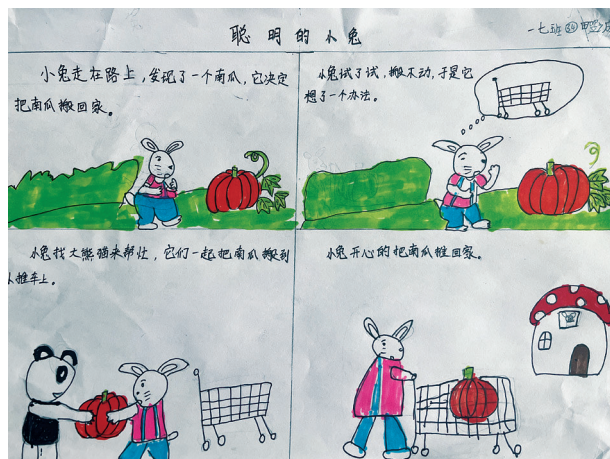 聪明的小兔
一七班
小兔走在路上,发现了一个南瓜,它决定
把南瓜搬回家。
小兔试了试,搬不动,于是它
想了一个办法。
小兔找大熊猫来帮忙,它们一起把南瓜搬到
小推车上。
小兔开心的把南瓜推回家。